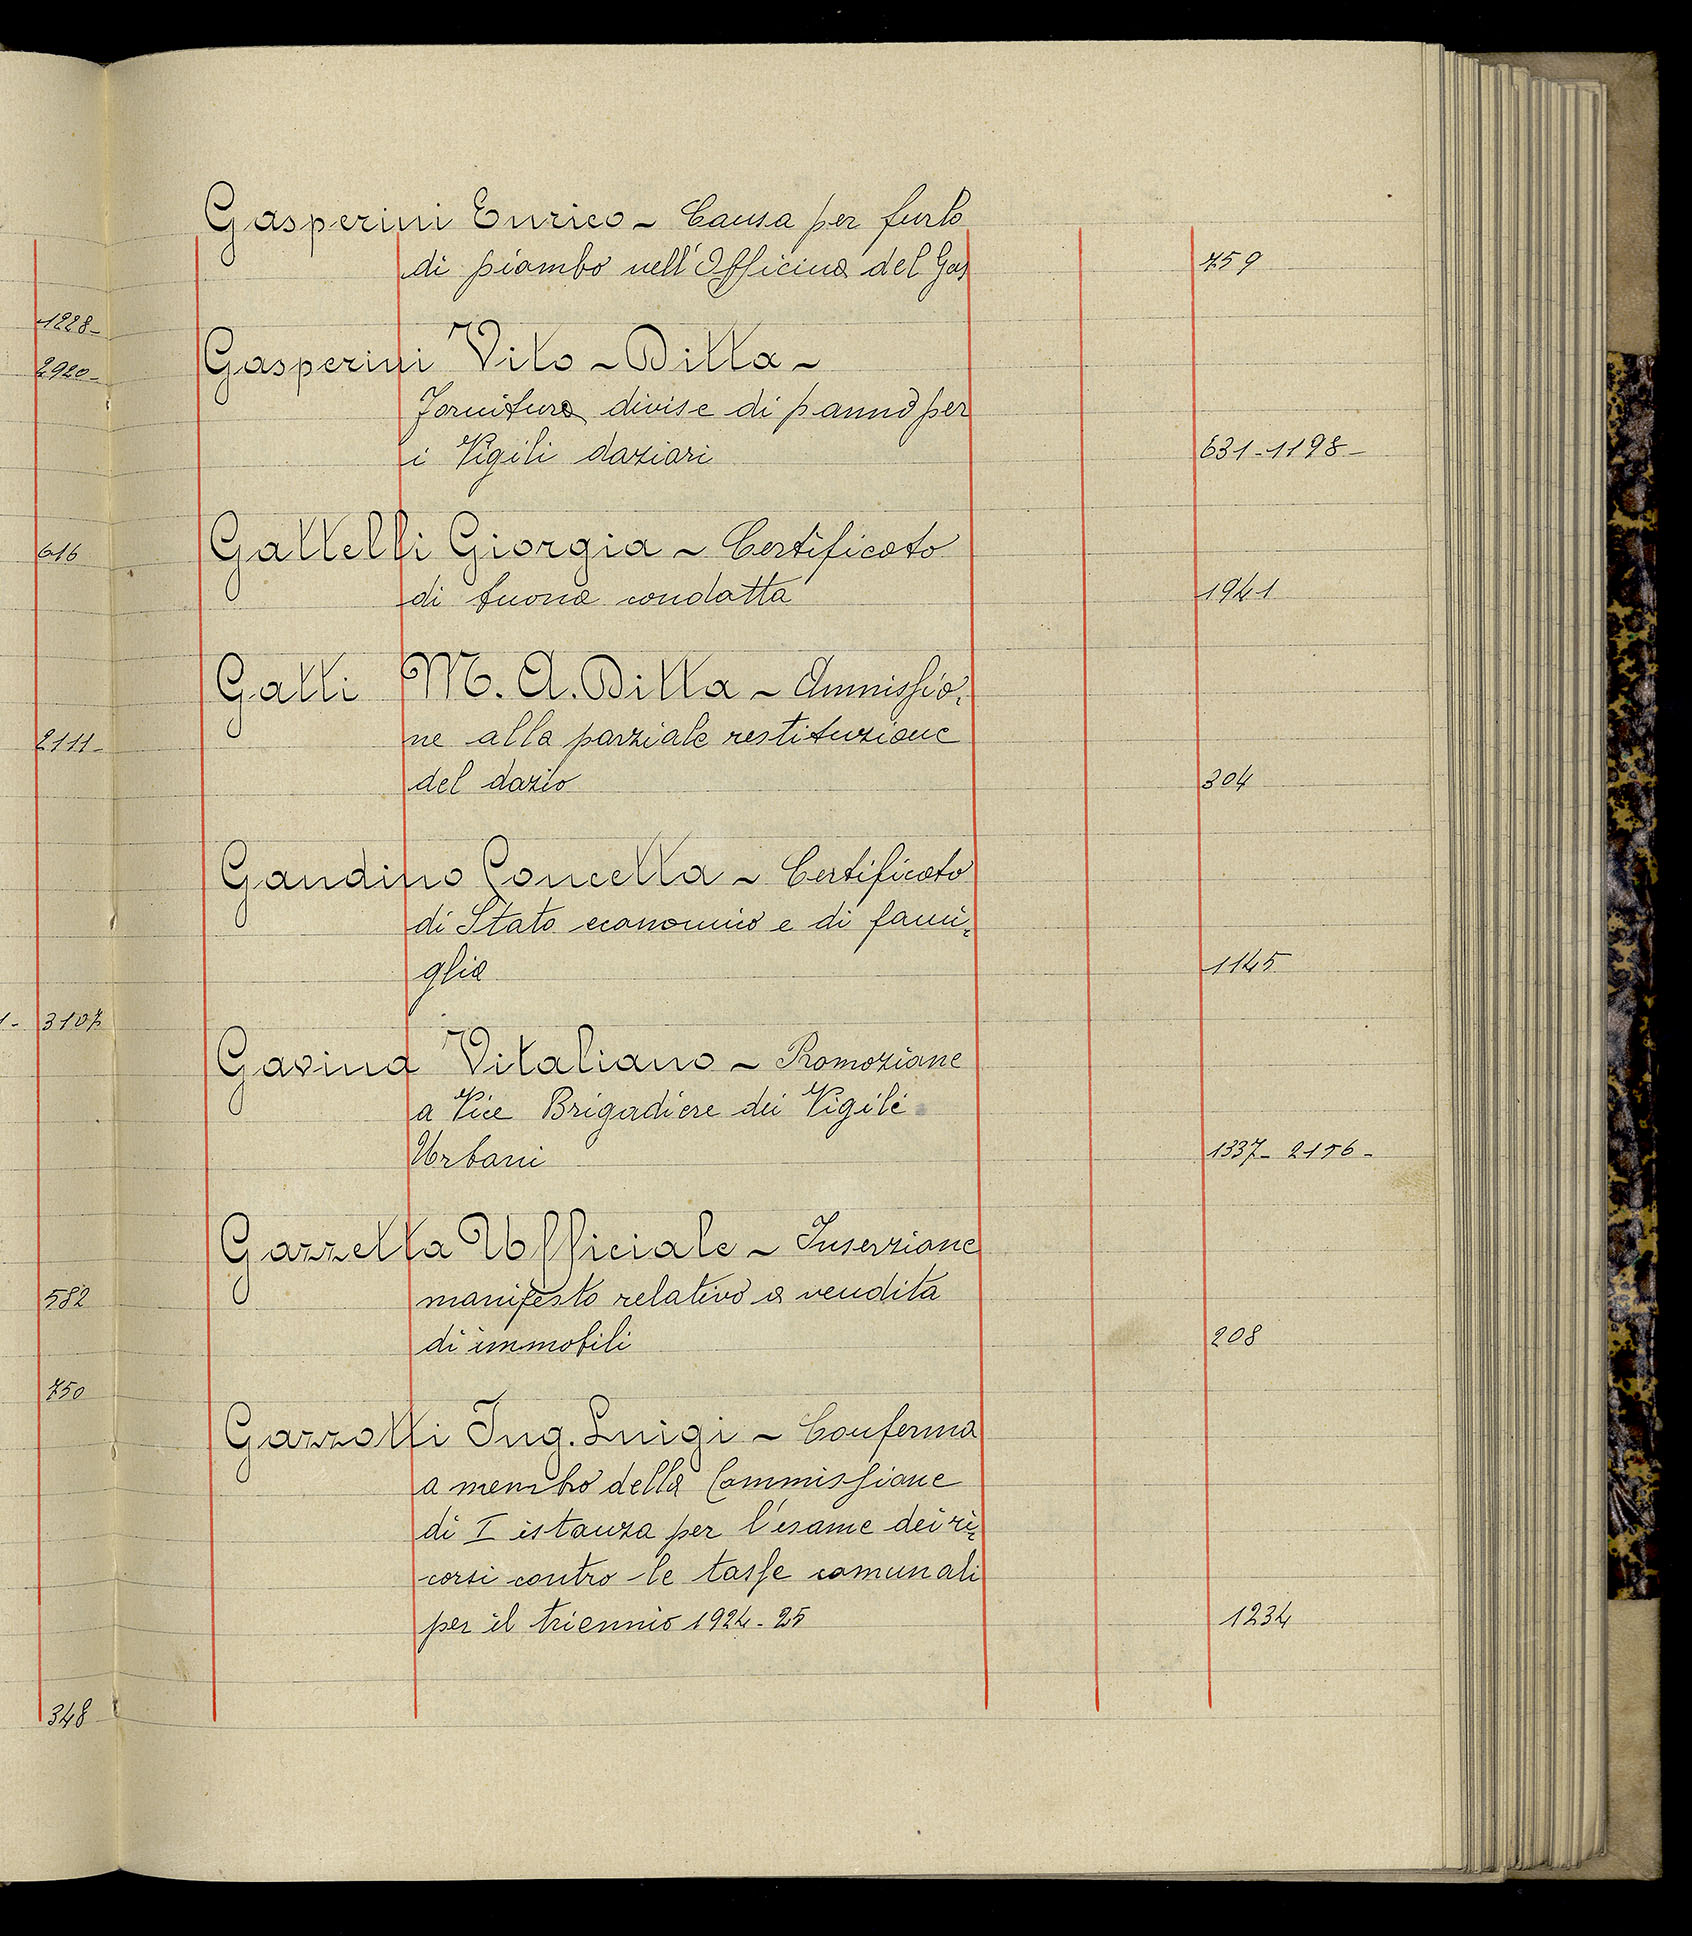 1228-
2920-
616
2111-
1- 3107
582
750
348
Gasperini Enrico - Causa per furto
di piombo nell'Officina del Gas 759
Gasperini Vito - Ditta -
Fornitura divise di panno per
i Vigili daziari 631-1198-
Gattelli Giorgia - Certificato
di buona condotta 1941
Gatti M. A. Ditta - Ammissio=
ne alla parziale restituzione
del dazio 304
Gaudino Concetta - Certificato
di Stato economico e di fami=
glia 1145
Gavina Vitaliano - Promozione
a Vice Brigadiere dei Vigili
Urbani 1337- 2156-
Gazzetta Ufficiale - Inserzione
manifesto relativo a vendita
di immobili 208
Gazzotti Ing. Luigi - Conferma
a membro della Commissione
di I istanza per l'esame dei ri=
corsi contro le tasse comunali
per il triennio 1924-25 1234